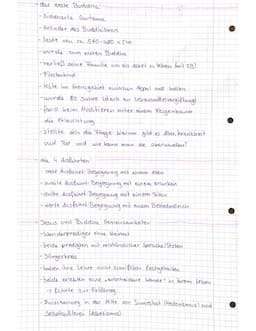 das erste Buddha:
- Siddharta Gautama
- Gründer des Buddhismus
- lebte von ca. 560-480 v. Chr
- wurde zum ersten Buddha
- verließ seine Familie um als Asket zu leben (mit 29)
- Fürstenkind
- lebte im Grenzgebiet zwischen Nepal und Indien
- wurde 80 Jahre (starb an Lebensmittelvergiftung)
- fand beim Meditieren unter einem Feigenbaum
die Erleuchtung
- stellte sich die Frage: Warum gibt es Alter, Krankheit
und Tod und wie kann man sie überwinden?
die 4 Ausfahrten
- erste Ausfahrt: Begegnung mit einem Alten
- zweite Ausfahrt: Begegnung mit einem Kranken
- dritte Ausfahrt: Begegnung mit einem Toten
- vierte Ausfahrt: Begegnung mit einem Bettelmönch
Jesus und Buddha Gemeinsamkeiten
- Wanderprediger ohne Heimat
- beide predigten mit
- Jüngerkreis
- haben ihre Lehre nicht schriftlich festgehalten
- beide erlebten eine "unfassbare Wende" in ihrem Leben
→
- in der Mitte von und